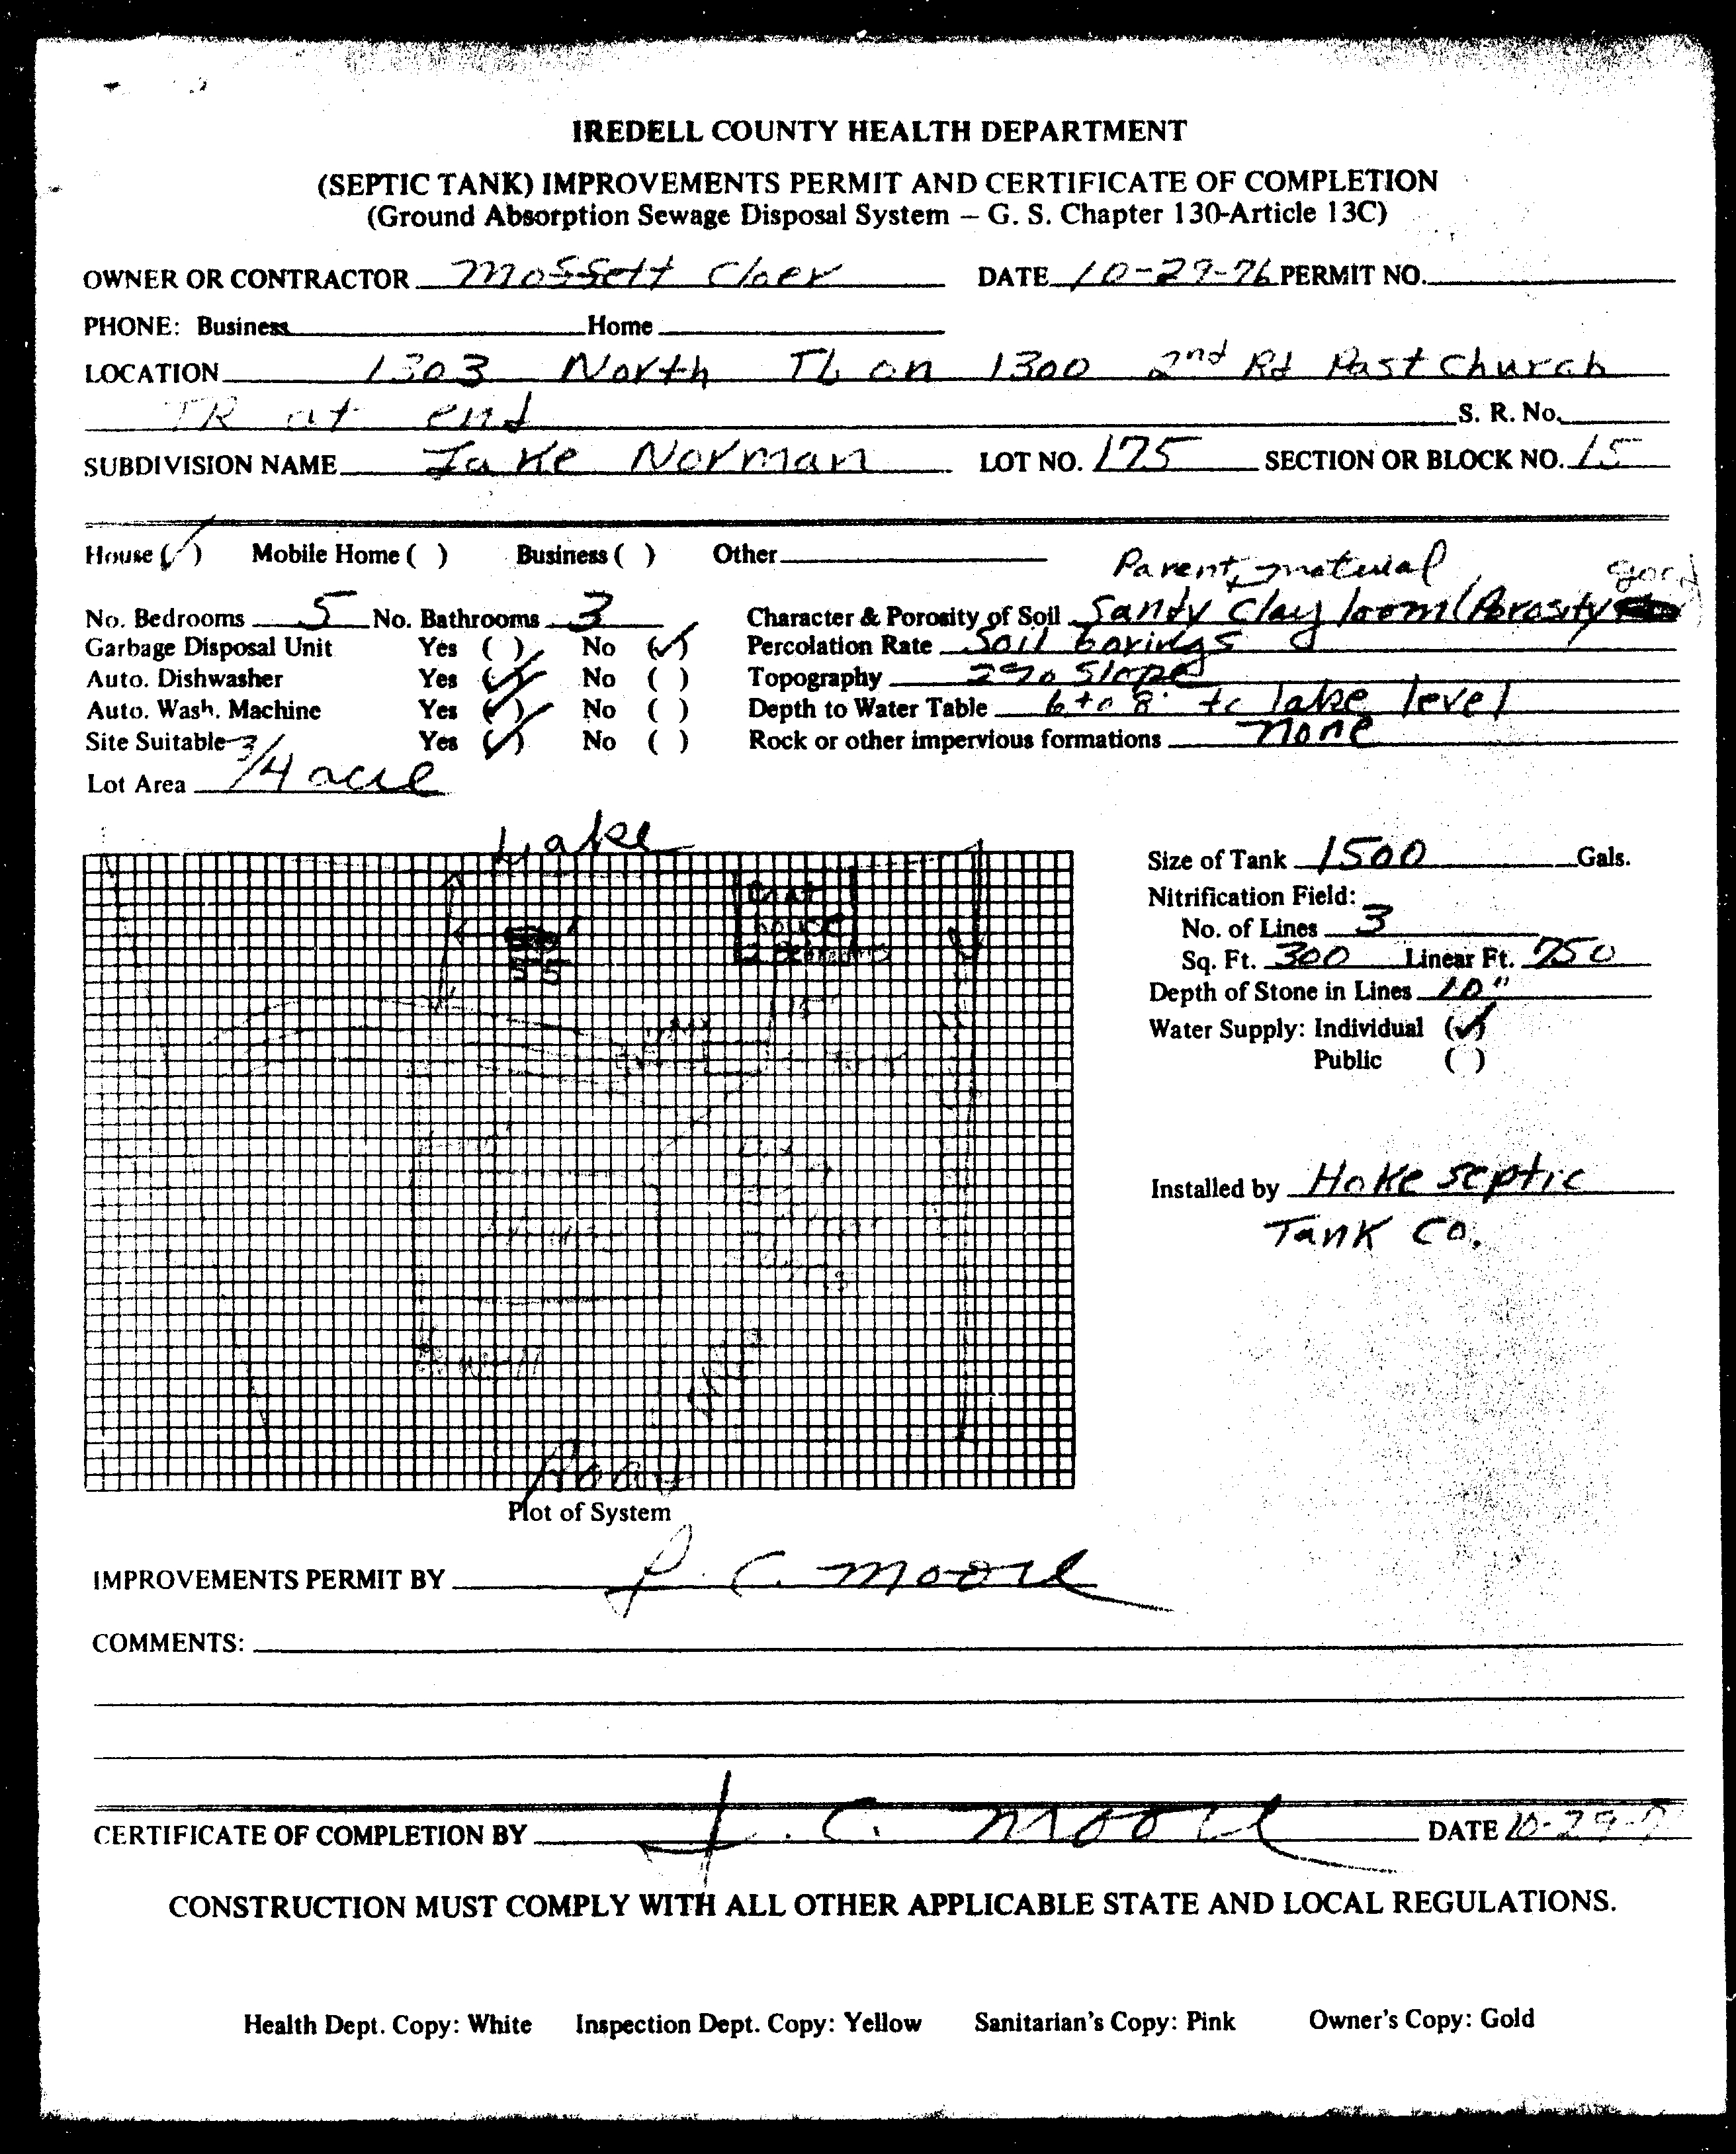 IREDELL COUNTY HEALTH DEPARTMENT
(SEPTIC TANK) IMPROVEMENTS PERMIT AND CERTIFICATE OF COMPLETION
(Ground Absorption Sewage Disposal System – G. S. Chapter 130-Article 13C)
OWNER OR CONTRACTOR Mossett DATE 10-29-76 PERMIT NO.
PHONE: Business Home
LOCATION 1303 North TL on 1300 2nd Rd Past Church
TR at end S. R. No.
SUBDIVISION NAME Lake Norman LOT NO. 175 SECTION OR BLOCK NO. 15
House (✓) Mobile Home ( ) Business ( ) Other
Parent material good
No. Bedrooms 5 No. Bathrooms 3 Character & Porosity of Soil Sandy clay loom (Porosity
Garbage Disposal Unit Yes ( ) No (✓) Percolation Rate Soil borings
Auto. Dishwasher Yes (✓) No ( ) Topography 2% Slope
Auto. Wash. Machine Yes (✓) No ( ) Depth to Water Table 6 to 8' to lake level
Site Suitable Yes (✓) No ( ) Rock or other impervious formations none
Lot Area 3/4 acre
Lake
Size of Tank 1500 Gals.
Nitrification Field:
No. of Lines 3
Sq. Ft. 300 Linear Ft. 750
Depth of Stone in Lines 10"
Water Supply: Individual (✓)
Public ( )
Boat
house
Installed by Hoke septic
Tank Co.
Road
Plot of System
IMPROVEMENTS PERMIT BY J. C. Moore
COMMENTS:
CERTIFICATE OF COMPLETION BY J. C. Moore DATE 10-29-7
CONSTRUCTION MUST COMPLY WITH ALL OTHER APPLICABLE STATE AND LOCAL REGULATIONS.
Health Dept. Copy: White Inspection Dept. Copy: Yellow Sanitarian's Copy: Pink Owner's Copy: Gold